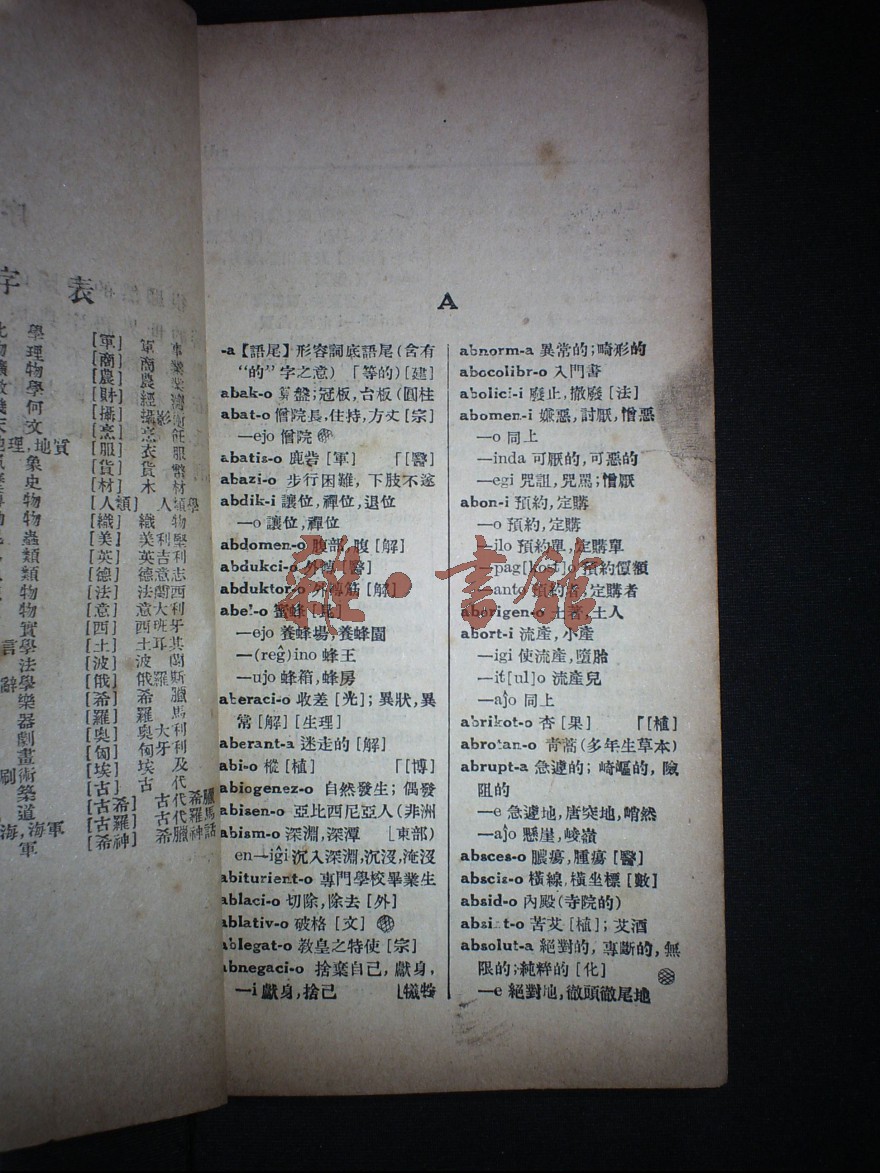 字 表
學 [軍] 軍
理 [商] 商
物 [農] 農
學 [財] 經
何 [攝] 攝 影
文 [烹] 烹
理,地質 [服] 衣
象 [貨] 貨 幣
史 [材] 木 材
物 [人類] 人 類 學
物 [織] 織 物
蟲 [美] 美 利 堅
類 [英] 英 吉 利
類 [德] 德 意 志
物 [法] 法 蘭 西
物 [意] 意 大 利
實 [西] 西 班 牙
言 學 [土] 土 耳 其
法 [波] 波 蘭
辭 學 [俄] 俄 羅 斯
樂 [希] 希 臘
器 [羅] 羅 馬
劇 [奧] 奧 大 利
畫 [匈] 匈 牙 利
刷 術 [埃] 埃 及
築 [古] 古 代
道 [古希] 古 代 希 臘
海,海軍 [古羅] 古 代 羅 馬
軍 [希神] 希 臘 神 話
A
-a【語尾】形容詞底語尾(含有
“的”字之意)「等的)[建]
abak-o 算盤;冠板,台板(圓柱
abat-o 僧院長,住持,方丈[宗]
—ejo 僧院
abatis-o 鹿砦[軍] 「[醫]
abazi-o 步行困難,下肢不遂
abdik-i 讓位,禪位,退位
—o 讓位,禪位
abdomen-o 腹部,腹[解]
abdukci-o 外轉[醫]
abduktor-o 外轉筋[解]
abel-o 蜜蜂[昆]
—ejo 養蜂場,養蜂園
—(reĝ)ino 蜂王
—ujo 蜂箱,蜂房
aberaci-o 收差[光];異狀,異
常[解][生理]
aberant-a 迷走的[解]
abi-o 樅[植] 「[博]
abiogenez-o 自然發生;偶發
abisen-o 亞比西尼亞人(非洲
abism-o 深淵,深潭 ⌊東部)
en—iĝi 沉入深淵,沉沒,淹沒
abiturient-o 專門學校畢業生
ablaci-o 切除,除去[外]
ablativ-o 破格[文]
ablegat-o 教皇之特使[宗]
abnegaci-o 捨棄自己,獻身,
—i 獻身,捨己 ⌊犧牲
abnorm-a 異常的;畸形的
abocolibr-o 入門書
abolici-i 廢止,撤廢[法]
abomen-i 嫌惡,討厭,憎惡
—o 同上
—inda 可厭的,可惡的
—egi 咒詛,咒罵;憎厭
abon-i 預約,定購
—o 預約,定購
—ilo 預約單,定購單
—pag[kost]o 預約價額
—anto 預約者,定購者
aborigen-o 土著,土人
abort-i 流產,小產
—igi 使流產,墮胎
—it[ul]o 流產兒
—aĵo 同上
abrikot-o 杏[果] 「[植]
abrotan-o 青蒿(多年生草本)
abrupt-a 急遽的;崎嶇的,險
阻的
—e 急遽地,唐突地,峭然
—aĵo 懸崖,峻嶺
absces-o 膿瘍,腫瘍[醫]
abscis-o 橫線,橫坐標[數]
absid-o 內殿(寺院的)
absint-o 苦艾[植];艾酒
absolut-a 絕對的,專斷的,無
限的;純粹的[化]
—e 絕對地,徹頭徹尾地
雜·書館